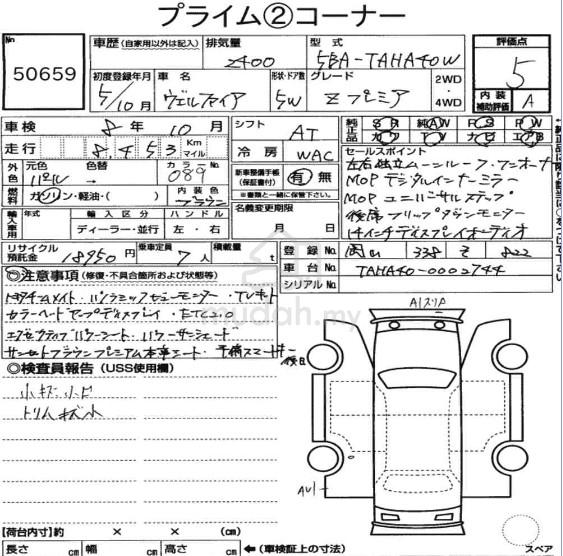 プライム②コーナー
No
50659
車歴 (自家用以外は記入)
排気量
2400
型式
5BA-TAHA40W
評価点
5
初度登録年月
5/10月
車名
ヴェルファイア
形状・ドア数
5W
グレード
Zプレミア
2WD
・
4WD
内装
補助評価
A
車検
8年10月
走行
8,453
Km
マイル
シフト
AT
冷房
WAC
純正品
SR
純AW
PS
PW
カワ
ナビ
エアB
外色
元色
パール
色替
カラーNo.
089
燃料
ガソリン・軽油・( )
内装色
ブラウン
新車整備手帳
(保証書付)
有・無
※書類と一緒に保管下さい。
セールスポイント
左右独立ムーンルーフ・ワンオーナ
MOPデジタルインナーミラー
MOPユニバーサルステップ
後席フリップダウンモニター
14インチディスプレイオーディオ
輸入車用
年式
輸入区分
ディーラー・並行
ハンドル
左・右
名義変更期限
月 日
リサイクル
預託金
18950円
乗車定員
7人
積載量
t
登録No.
岡山 338 そ 822
車台No.
TAHA40-0002744
シリアルNo.
◎注意事項 (修復・不具合箇所および状態等)
トヨタチームメイト・パノラミックビューモニター・TVキット
カラーヘッドアップディスプレイ・ETC2.0
エグゼクティブパワーシート・パワーサンシェード
サンセットブラウンプレミアム本革シート・予備スマートキー後日
mudah.my
◎検査員報告 (USS使用欄)
小キズ小凹
トリムキズ小
A1スリハ
AU1
【荷台内寸】約 × × (cm)
長さ cm 幅 cm 高さ cm
←(車検証上の寸法)
スペア